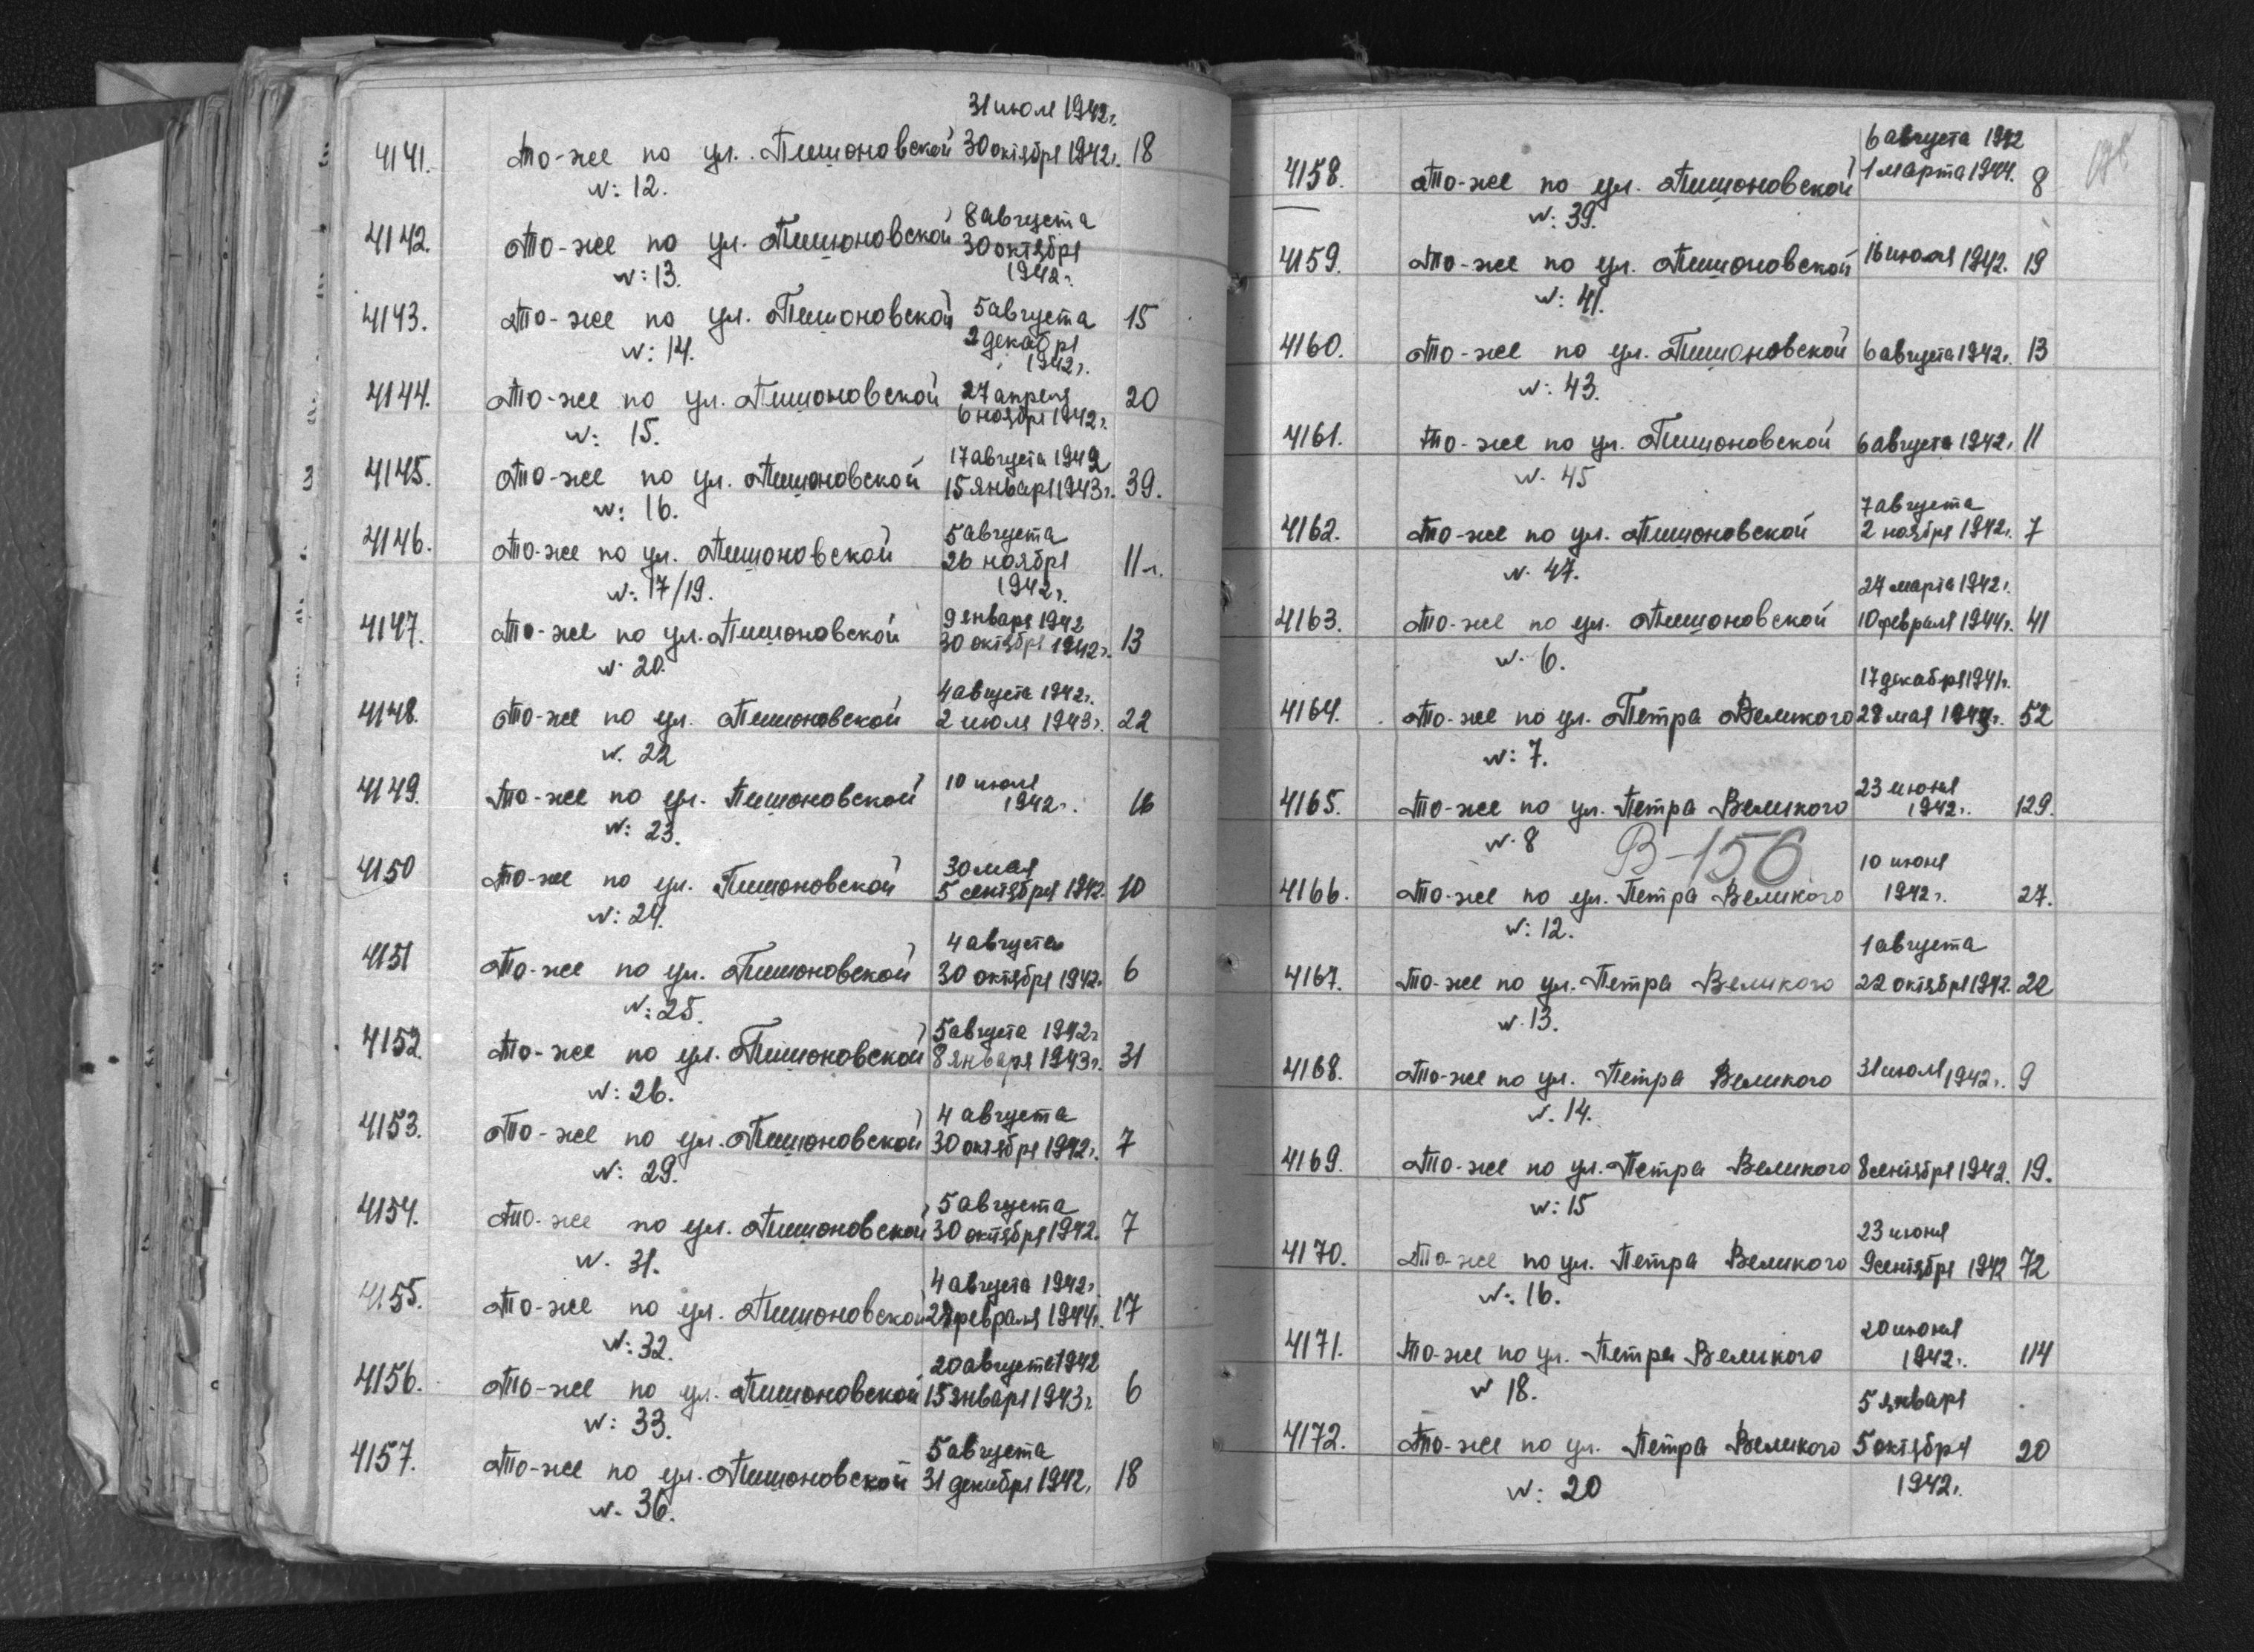 31 июля 1942г.
4141. То-же по ул. Пишоновской 30 октября 1942г. 18
N: 12.
8 августа
4142. То-же по ул. Пишоновской 30 октября
N: 13. 1942г.
4143. То-же по ул. Пишоновской 5 августа 15
N: 14. 2 декабря
1942г.
4144. То-же по ул. Пишоновской 27 апреля 20
6 ноября 1942г.
N: 15.
17 августа 1942
4145. То-же по ул. Пишоновской 15 января 1943г. 39.
N: 16.
5 августа
4146. То-же по ул. Пишоновской 26 ноября 11 л.
N: 17/19. 1942г.
9 января 1942
4147. То-же по ул. Пишоновской 30 октября 1942г. 13
N. 20.
4 августа 1942г.
4148. То-же по ул. Пишоновской 2 июля 1943г. 22
N. 22
10 июля
4149. То-же по ул. Пишоновской 1942г. 16
N: 23.
30 мая
4150 То-же по ул. Пишоновской 5 сентября 1942. 10
N: 24.
4 августа
4151 То-же по ул. Пишоновской 30 октября 1942. 6
N: 25.
5 августа 1942г.
4152. То-же по ул. Пишоновской 8 января 1943г. 31
N: 26.
4 августа
4153. То-же по ул. Пишоновской 30 октября 1942г. 7
N: 29.
5 августа
4154. То-же по ул. Пишоновской 30 октября 1942. 7
N. 31.
4 августа 1942г.
4155. То-же по ул. Пишоновской февраля 1944г. 17
N: 32.
20 августа 1942
4156. То-же по ул. Пишоновской 15 января 1943г. 6
N: 33.
5 августа
4157. То-же по ул. Пишоновской 31 декабря 1942. 18
N. 36.
6 августа 1942
4158. То-же по ул. Пишоновской 1 марта 1944. 8
N: 39.
4159. То-же по ул. Пишоновской 16 июля 1942. 19
N: 41.
4160. То-же по ул. Пишоновской 6 августа 1942г. 13
N: 43.
4161. То-же по ул. Пишоновской 6 августа 1942. 11
N. 45
7 августа
4162. То-же по ул. Пишоновской 2 ноября 1942г. 7
N. 47.
24 марта 1942г.
4163. То-же по ул. Пишоновской 10 февраля 1944г. 41
N. 6.
17 декабря 1941г.
4164. То-же по ул. Петра Великого 28 мая 1943г. 52
N: 7.
23 июня
4165. То-же по ул. Петра Великого 1942г. 129.
N. 8
В-156
10 июня
4166. То-же по ул. Петра Великого 1942г. 27.
N: 12.
1 августа
4167. То-же по ул. Петра Великого 22 октября 1942. 22
N. 13.
4168. То-же по ул. Петра Великого 31 июля 1942г. 9
N. 14.
4169. То-же по ул. Петра Великого 8 сентября 1942. 19.
N: 15
23 июня
4170. То-же по ул. Петра Великого 9 сентября 1942 72
N: 16.
20 июня
4171. То-же по ул. Петра Великого 1942г. 114
N 18.
5 января
4172. То-же по ул. Петра Великого 5 октября 20
N: 20 1942г.